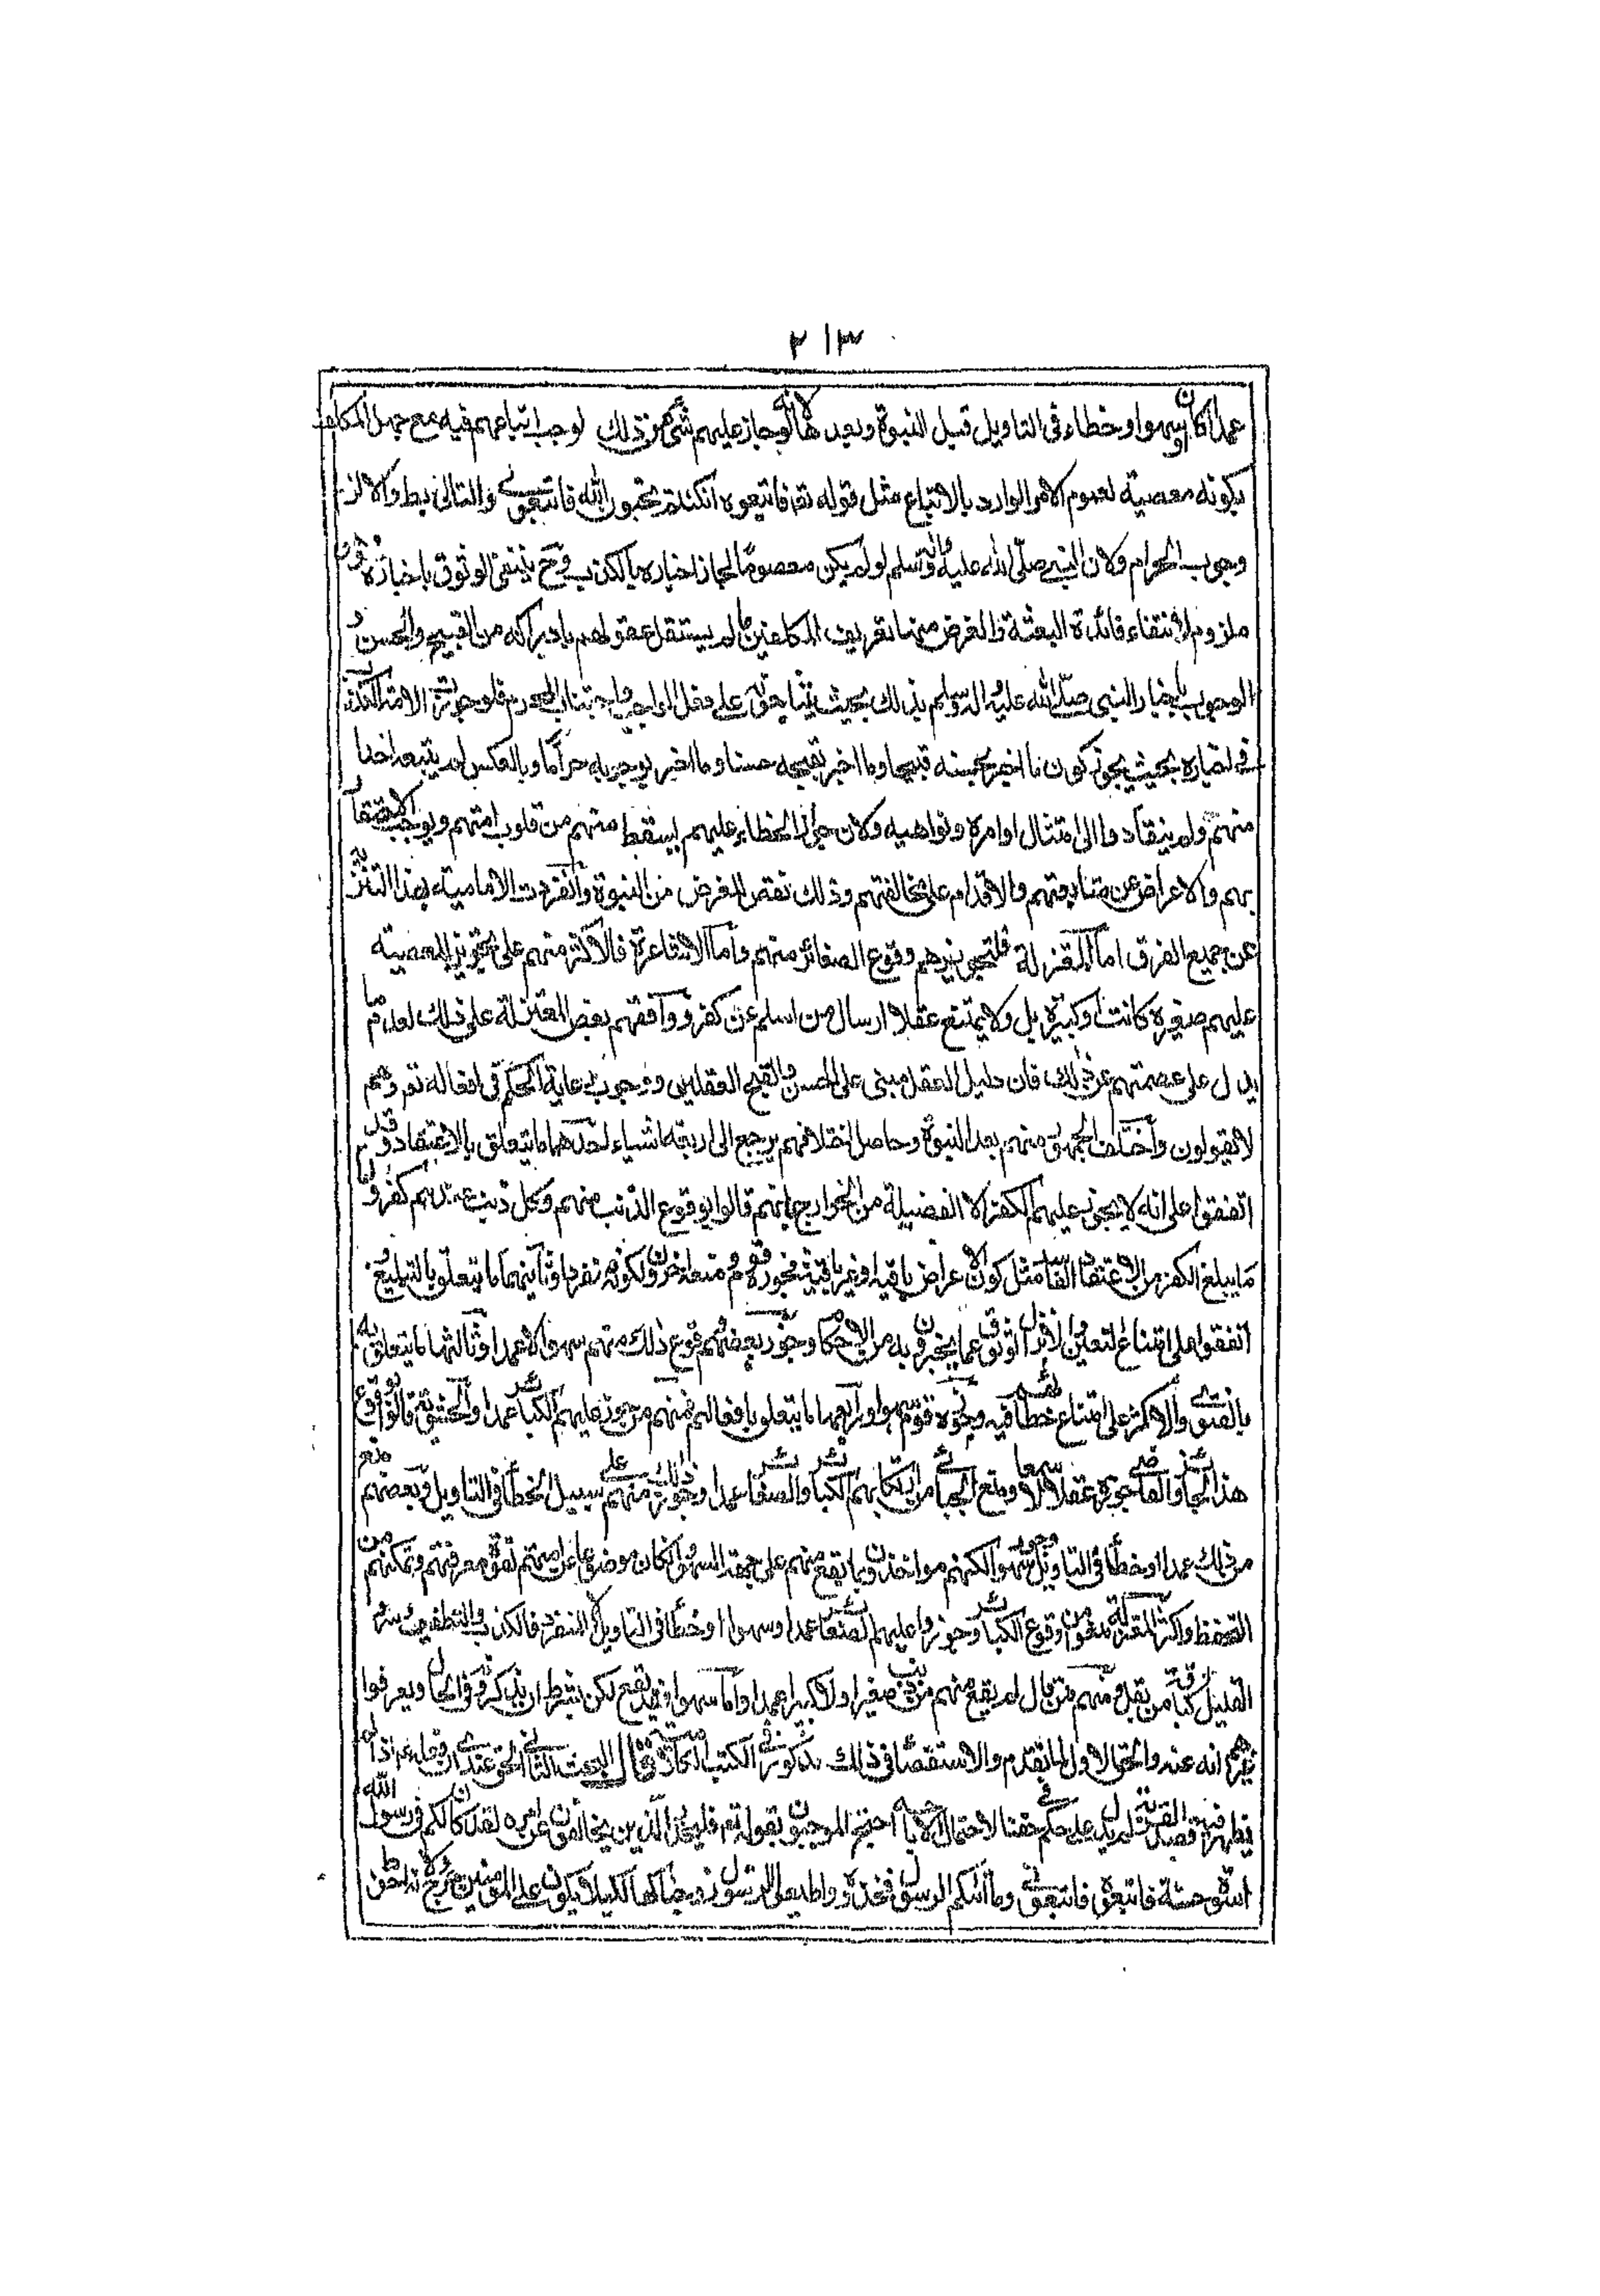 ٢١٣
عمدا كان او سهوا او خطاء فى التاويل قبل النبوة وبعدها لانه لو جاز عليهم شئ من ذلك لوجب اتباعهم فيه مع جهل المكلف
بكونه معصية لعموم الامر الوارد بالاتباع مثل قوله تعم فاتبعوه ان كنتم تحبون الله فاتبعونى والتالى بط والا لزم
وجوب الحرام ولان النبى صلى الله عليه وآله وسلم لو لم يكن معصوما لجاز اخباره بالكذب وح ينتفى الوثوق باخباره
ملزوم لانتفاء فائدة البعثة اذ الغرض منها تعريف المكلفين ما لم يستقل عقولهم بادراكه من القبيح والحسن و
الوجوب باخبار النبى صلى الله عليه وآله وسلم بذلك بحيث على فعل الواجب واجتناب المحرم فلو جوزت الامة الكذب
فى اخباره بحيث يجوز كون ما اخبر بحسنه قبيحا وما اخبر بقبحه حسنا وما اخبر بوجوبه حراما وبالعكس لم يتبعه احد
منهم ولم ينقادوا الى امتثال اوامره ونواهيه ولان جواز الخطاء عليهم يسقط منهم من قلوب امتهم ويوجب
بهم والاعراض عن متابعتهم والاقدام على مخالفتهم وذلك نقص للغرض من النبوة وانفردت الامامية بهذا التنزيه
عن جميع الفرق اما المعتزلة فلتجويزهم وقوع الصغائر منهم واما الاشاعرة فالاكثر منهم على تجويز المعصية
عليهم صغيرة كانت او كبيرة بل ولا يمتنع عقلا ارسال من اسلم عن كفر ووافقهم بعض المعتزلة على ذلك لعدم ما
يدل على عصمتهم عن ذلك فان دليل العقل مبنى على الحسن والقبح العقليين ووجوب رعاية الحكم فى افعاله تعم وهم
لا يقولون واختلف الجمهور منهم بعد النبوة وحاصل اختلافهم يرجع الى اربعة اشياء احدها ما يتعلق بالاعتقاد وقد
اتفقوا على انه لا يجوز عليهم الكفر الا الفضيلة من الخوارج فانهم قالوا بوقوع الذنب منهم وكل ذنب عندهم كفر واما
ما يبلغ الكفر من الاعتقاد الفاسد مثل كون الاعراض باقية او غير باقية فجوزه قوم ومنعه اخرون لكونه منفرا وثانيها ما يتعلق بالتبليغ و
اتفقوا على امتناع التعمد والا لزال الوثوق عما يخبرون به من الاحكام وجوز بعضهم وقوع ذلك منهم سهوا لا عمدا وثالثها ما يتعلق
بالفتوى والاكثر على امتناع خطائه فيه وجوزه قوم سهوا ورابعها ما يتعلق بافعالهم فمنهم من جوز عليهم الكبائر عمدا والحشوية قالوا بوقوع
هذا الجائز والقاضى جوزه عقلا لا سمعا ومنع الجبائى من ارتكابهم الكبائر والصغائر عمدا وجوز ذلك منهم على سبيل الخطأ فى التاويل وبعضهم منع
من ذلك عمدا او خطأ فى التاويل وجوزه سهوا لكنهم مواخذون بما يقع منهم على جهة السهو وان كان موضوعا عن امتهم لقوة معرفتهم وتمكنهم من
التحفظ واكثر المعتزلة منعوا من وقوع الكبائر وجوزوا عليهم الصغائر عمدا وسهوا او خطأ فى التاويل الا المنفرة فالكذب والتطفيف
القليل من قال لم يقع منهم ذنب صغيرا ولا كبيرا عمدا واما سهوا فقد يقع لكن بشرط ان يذكروه فى الحال ويعرفوا
غيرهم انه والحق الاول لما تقدم والاستقصاء فى ذلك مذكور فى الكتب الكلامية قال البحث الثانى الحق عندى ان فعله عم اذا لم
يظهر فيه قصد القربة لم يدل على حكم فى حقنا لاحتمال الاباحة احتج الموجبون بقوله تعم فليحذر الذين يخالفون عن امره لقد كان لكم فى رسول الله
اسوة حسنة فاتبعوه فاتبعونى وما آتاكم الرسول فخذوه واطيعوا الرسول زوجناكها لكيلا يكون على المؤمنين حرج ولانه احوط